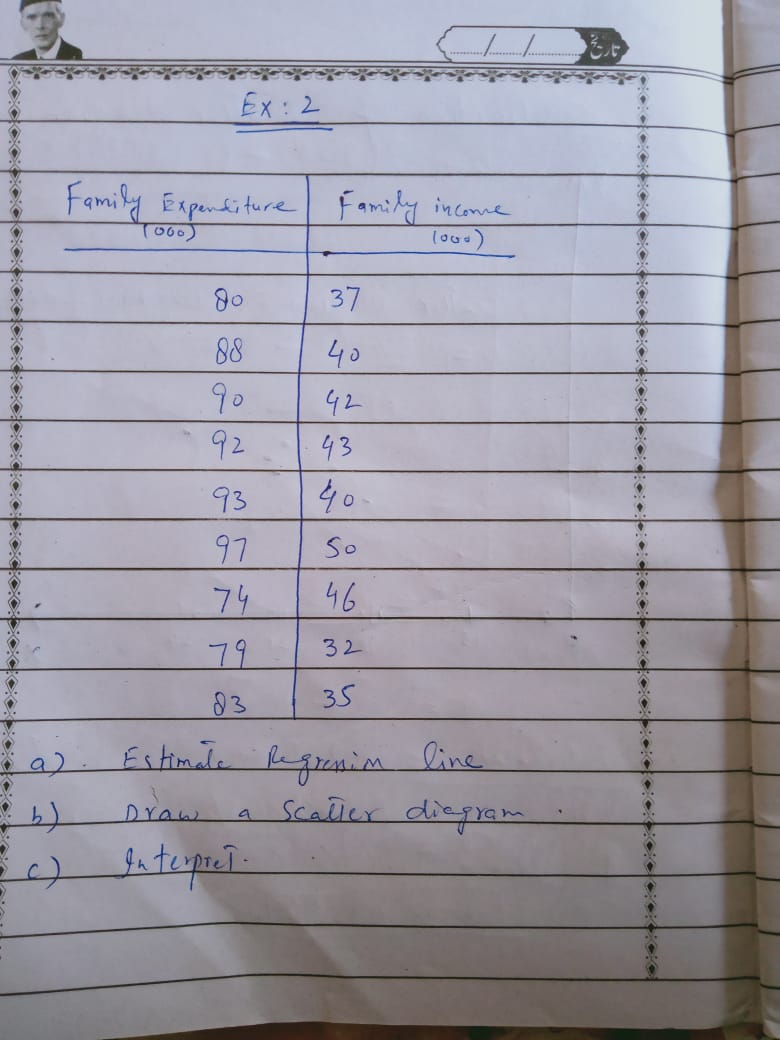 ...../...../..... تاریخ
Ex : 2
Family Expenditure Family income
(000) (000)
80 37
88 40
90 42
92 43
93 40
97 50
74 46
79 32
83 35
a). Estimate Regression line
b) Draw a Scatter diagram.
c) Interpret.